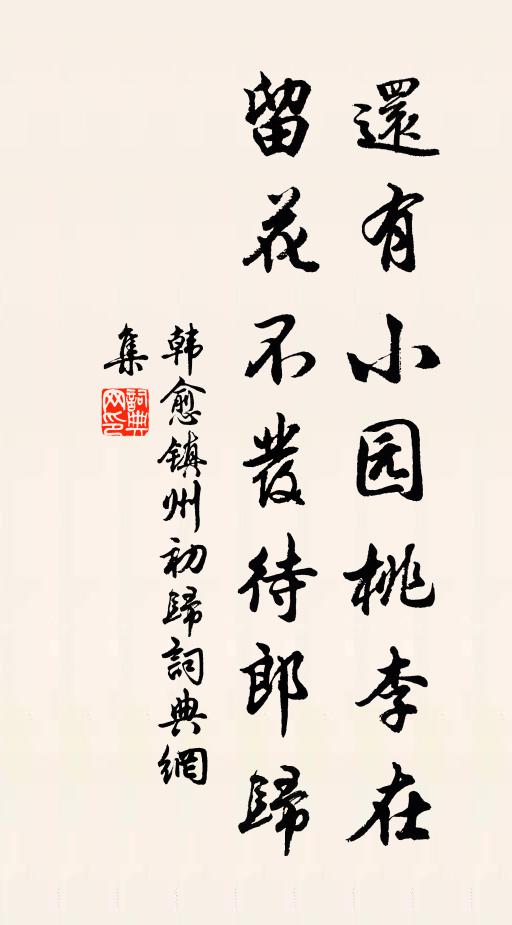 還有小园桃李在
留花不發待郎歸
韩愈鎮州初歸詞典網
集
詞典
网印